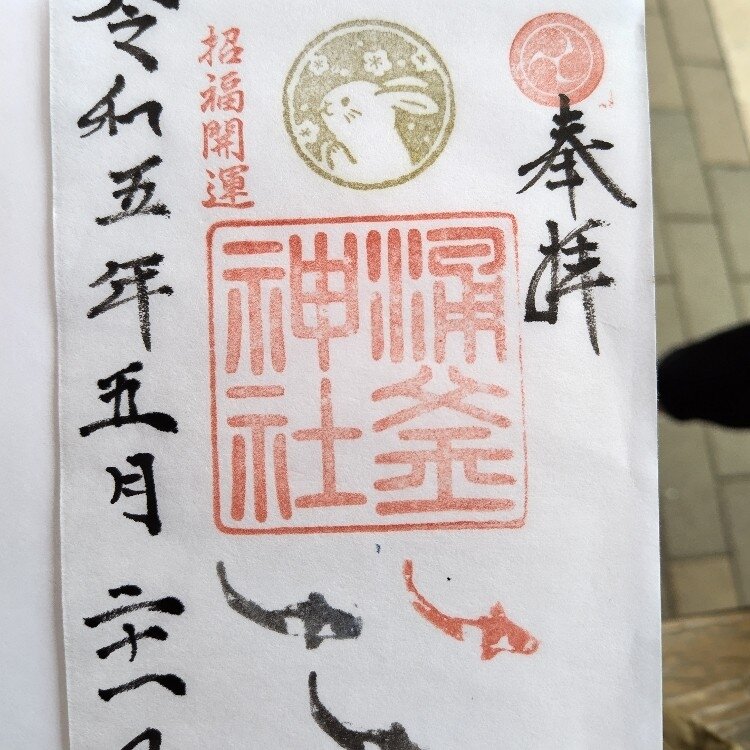 奉拝
涌釜
神社
招福開運
令和五年五月二十一日